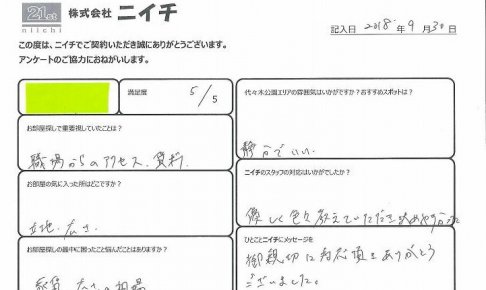 21st
niichi
株式会社 ニイチ
記入日 2018年 9月 30日
この度は、ニイチでご契約いただき誠にありがとうございます。
アンケートのご協力におねがいします。
満足度 5/5
お部屋探しで重要視していたことは?
職場からのアクセス、賃料
お部屋の気に入った所はどこですか?
立地、広さ
お部屋探しの最中に困ったこと悩んだことはありますか?
広さの相場
代々木公園エリアの雰囲気はいかがですか?おすすめスポットは?
静かでいい。
ニイチのスタッフの対応はいかがでしたか?
優しく色々教えていただき
ひとことニイチにメッセージを
御親切に対応頂きありがとう
ございました。